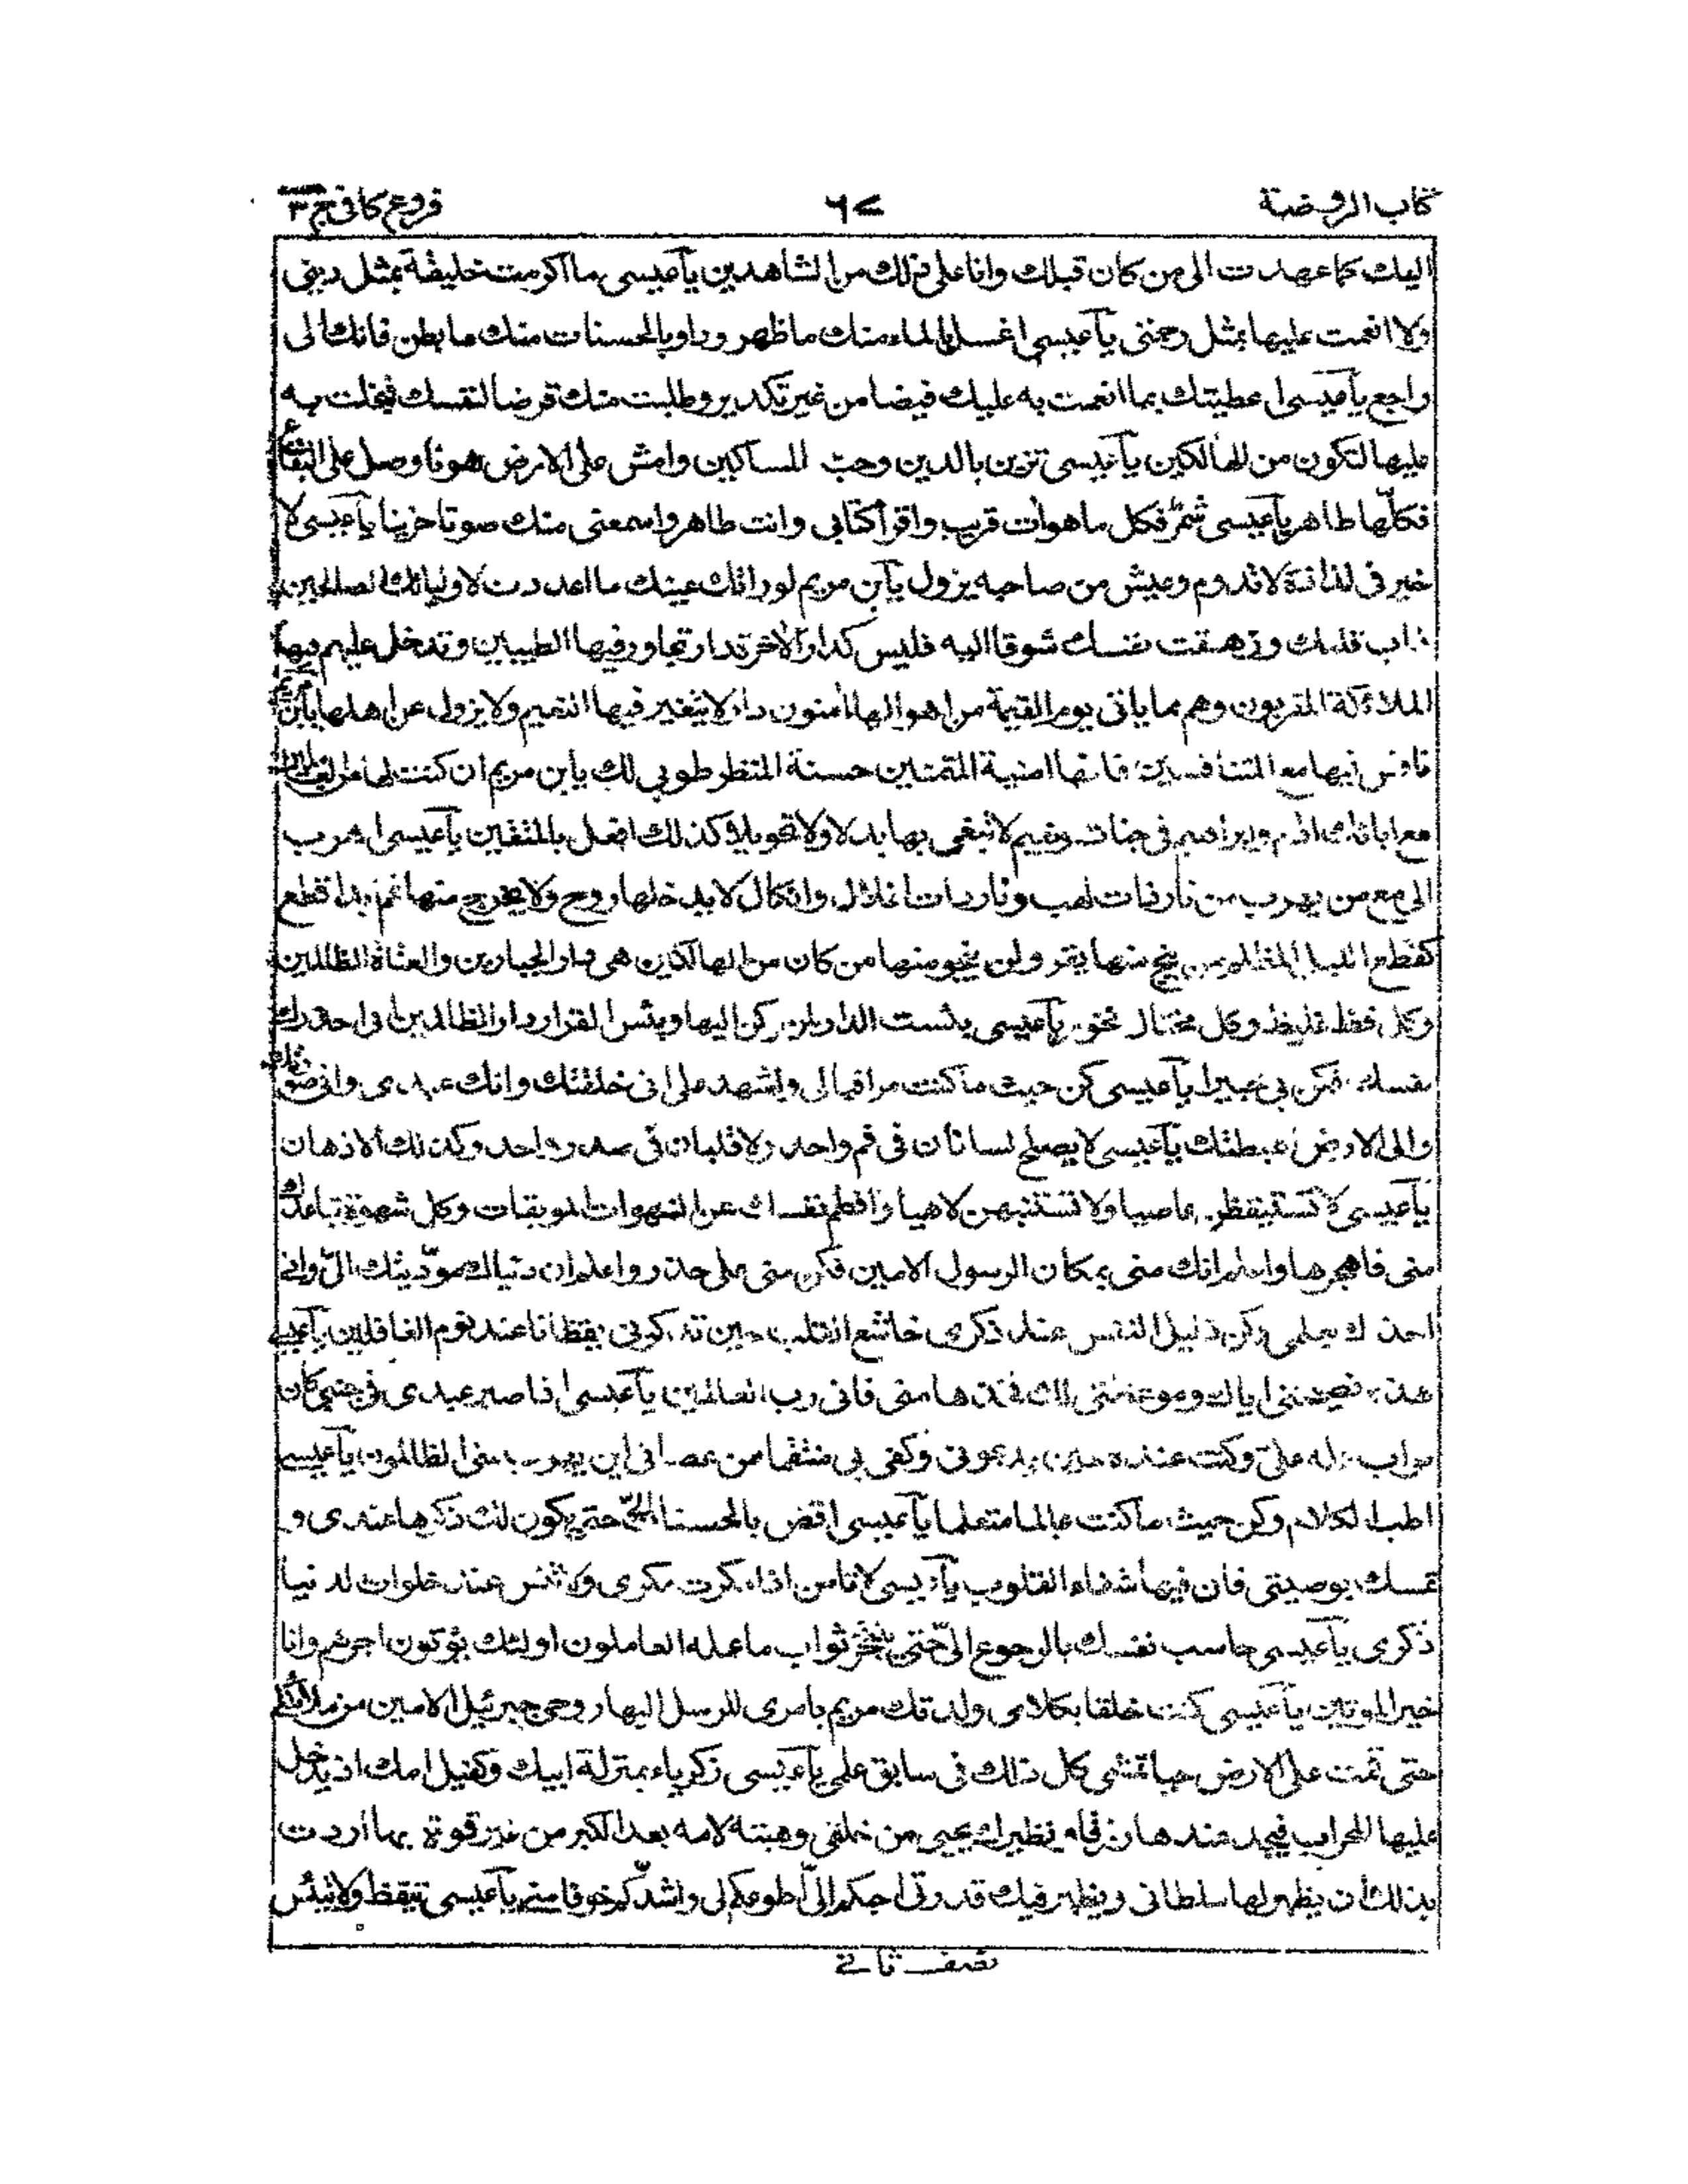 كتاب الروضة
٦٧
فروع كافى ج ٣
اليك كما عهدت الى من كان قبلك وانا على ذلك من الشاهدين يا عيسى ما اكرمت خليقة بمثل دينى
ولا انعمت عليها بمثل رحمتى يا عيسى اغسل بالماء منك ما ظهر وداو بالحسنات منك ما بطن فانك الى
راجع يا عيسى اعطيتك بما انعمت به عليك فيضا من غير تكدير وطلبت منك قرضا لنفسك فبخلت به
عليها لتكون من الهالكين يا عيسى تزين بالدين وحبّ المساكين وامش على الارض هونا وصل على البقاع
فكلّها طاهر يا عيسى شمّر فكل ما هو ات قريب واقرأ كتابى وانت طاهر واسمعنى منك صوتا حزينا يا عيسى لا
خير فى لذاذة لا تدوم وعيش من صاحبه يزول يا بن مريم لو رات عينك ما اعددت لاوليائك الصالحين
ذاب قلبك وزهقت نفسك شوقا اليه فليس كدار الاخرة دار تجاور فيها الطيبين وتدخل عليهم فيها
الملائكة المقربون وهم مما ياتى يوم القيمة من اهوالها امنون دار لا يتغير فيها النعيم ولا يزول عن اهلها يا بن مريم
نافس فيها مع المتنافسين فانها امنية المتمنين حسنة المنظر طوبى لك يا بن مريم ان كنت لها من العاملين
مع ابائك ادم وابراهيم فى جنات ونعيم لا تبغى بها بدلا ولا تحويلا كذلك افعل بالمتقين يا عيسى اهرب
الى مع من يهرب من نار ذات لهب ونار ذات اغلال وانكال لا يدخلها روح ولا يخرج منها غم ابدا قطع
كقطع الليل المظلم من ينج منها يفز ولن ينجو منها من كان من الهالكين هى دار الجبارين والعتاة الظالمين
وكل فظ غليظ وكل مختال فخور يا عيسى بئست الدار لمن ركن اليها وبئس القرار دار الظالمين انى احذرك
نفسك فكن بى خبيرا يا عيسى كن حيث ما كنت مراقبا لى واشهد على انى خلقتك وانك عبدى وانى صورتك
والى الارض اهبطتك يا عيسى لا يصلح لسانان فى فم واحد ولا قلبان فى صدر واحد وكذلك الاذهان
يا عيسى لا تستيقظن عاصيا ولا تستنبهن لاهيا وافطم نفسك عن الشهوات الموبقات وكل شهوة تباعدك
منى فاهجرها واعلم انك منى بمكان الرسول الامين فكن منى على حذر واعلم ان دنياك مودّيتك الىّ وانى
اخذك بعلمى وكن ذليل النفس عند ذكرى خاشع القلب حين تذكرنى يقظانا عند نوم الغافلين يا عيسى
هذه نصيحتى اياك وموعظتى لك فخذها منى فانى رب العالمين يا عيسى اذا صبر عبدى فى جنبى كان
ثواب عمله علىّ وكنت عنده حين يدعونى وكفى بى منتقما ممن عصانى اين يهرب منى الظالمون يا عيسى
اطب الكلام وكن حيث ما كنت عالما متعلما يا عيسى افض بالحسنات الىّ حتى يكون لك ذكرها عندى و
تمسك بوصيتى فان فيها شفاء القلوب يا عيسى لا تامن اذا مكرت مكرى ولا تنس عند خلوات الدنيا
ذكرى يا عيسى حاسب نفسك بالرجوع الىّ حتى تتنجز ثواب ما عمله العاملون اولئك يؤتون اجرهم وانا
خير الموتين يا عيسى كنت خلقا بكلامى ولدتك مريم بامرى المرسل اليها روحى جبرئيل الامين من ملائكتى
حتى قمت على الارض حيا تمشى كل ذلك فى سابق علمى يا عيسى زكرياء بمنزلة ابيك وكفيل امك اذ يدخل
عليها المحراب فيجد عندها رزقا ونظيرك يحيى من خلقى وهبته لامه بعد الكبر من غير قوة بها اردت
بذلك ان يظهر لها سلطانى ويظهر فيك قدرتى احبكم الىّ اطوعكم لى واشدّكم خوفا منى يا عيسى تيقظ ولا تيئس
نصف ثانى